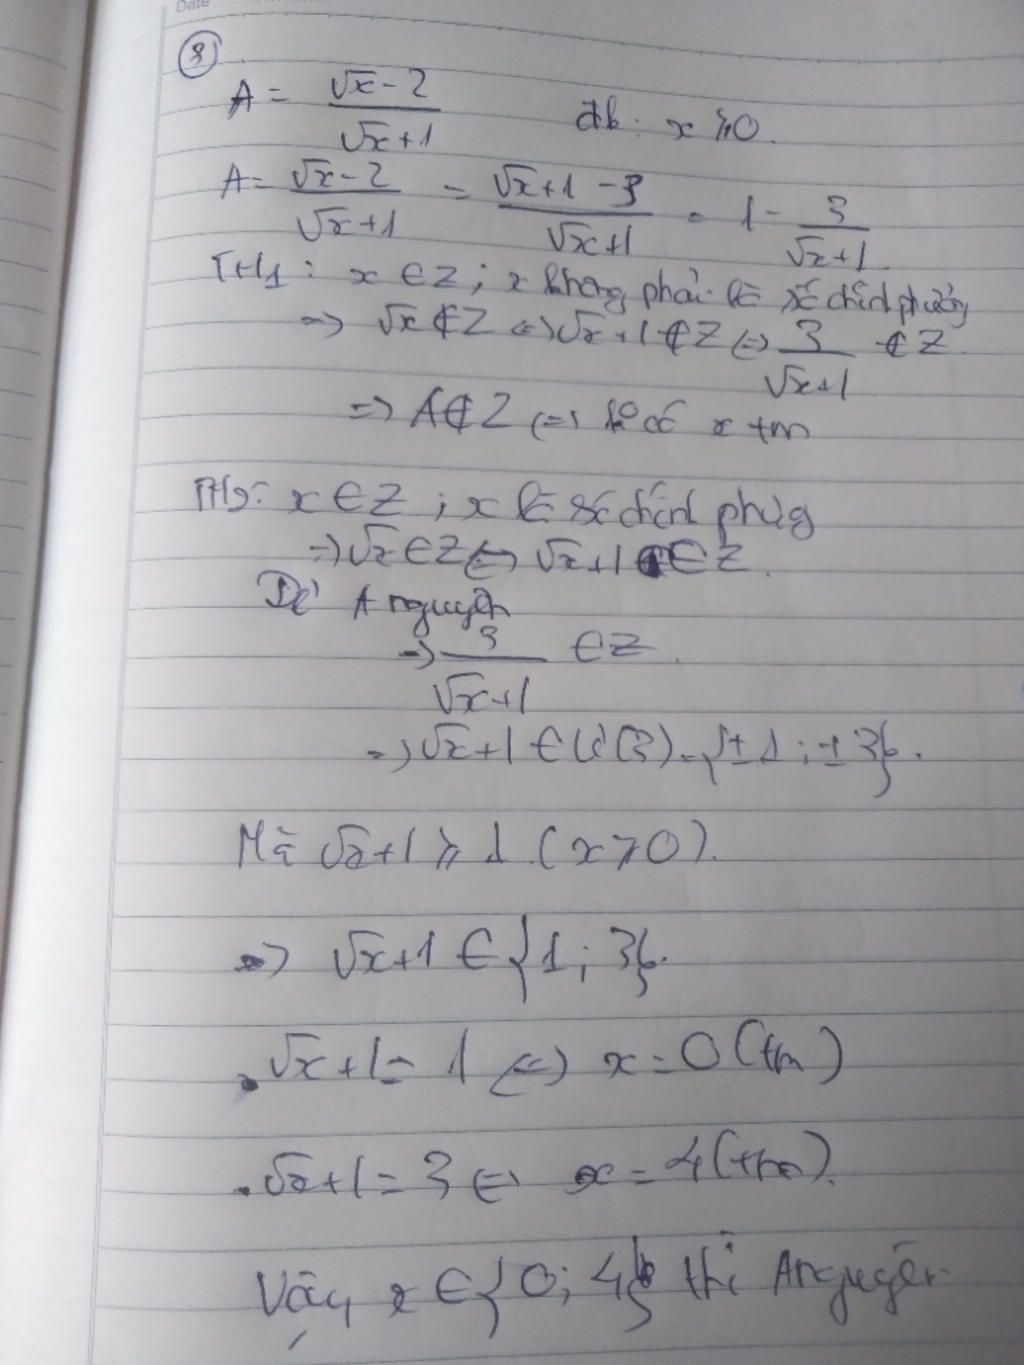 Date
8
A = \frac{\sqrt{x}-2}{\sqrt{x}+1} đk: x ⩾ 0.
A = \frac{\sqrt{x}-2}{\sqrt{x}+1} = \frac{\sqrt{x}+1-3}{\sqrt{x}+1} = 1 - \frac{3}{\sqrt{x}+1}.
TH1: x ∈ Z; x không phải là số chính phương
=> √x ∉ Z <=> √x+1 ∉ Z <=> \frac{3}{\sqrt{x}+1} ∉ Z.
=> A ∉ Z <=> ko có x tm
TH2: x ∈ Z; x là số chính phương
=> √x ∈ Z <=> √x+1 ∈ Z.
Để A nguyên
=> \frac{3}{\sqrt{x}+1} ∈ Z.
=> √x+1 ∈ Ư(3) = {±1; ±3}.
Mà √x+1 ⩾ 1 (x ⩾ 0).
=> √x+1 ∈ {1; 3}.
. √x+1 = 1 <=> x = 0 (tm)
. √x+1 = 3 <=> x = 4 (tm).
Vậy x ∈ {0; 4} thì A nguyên.